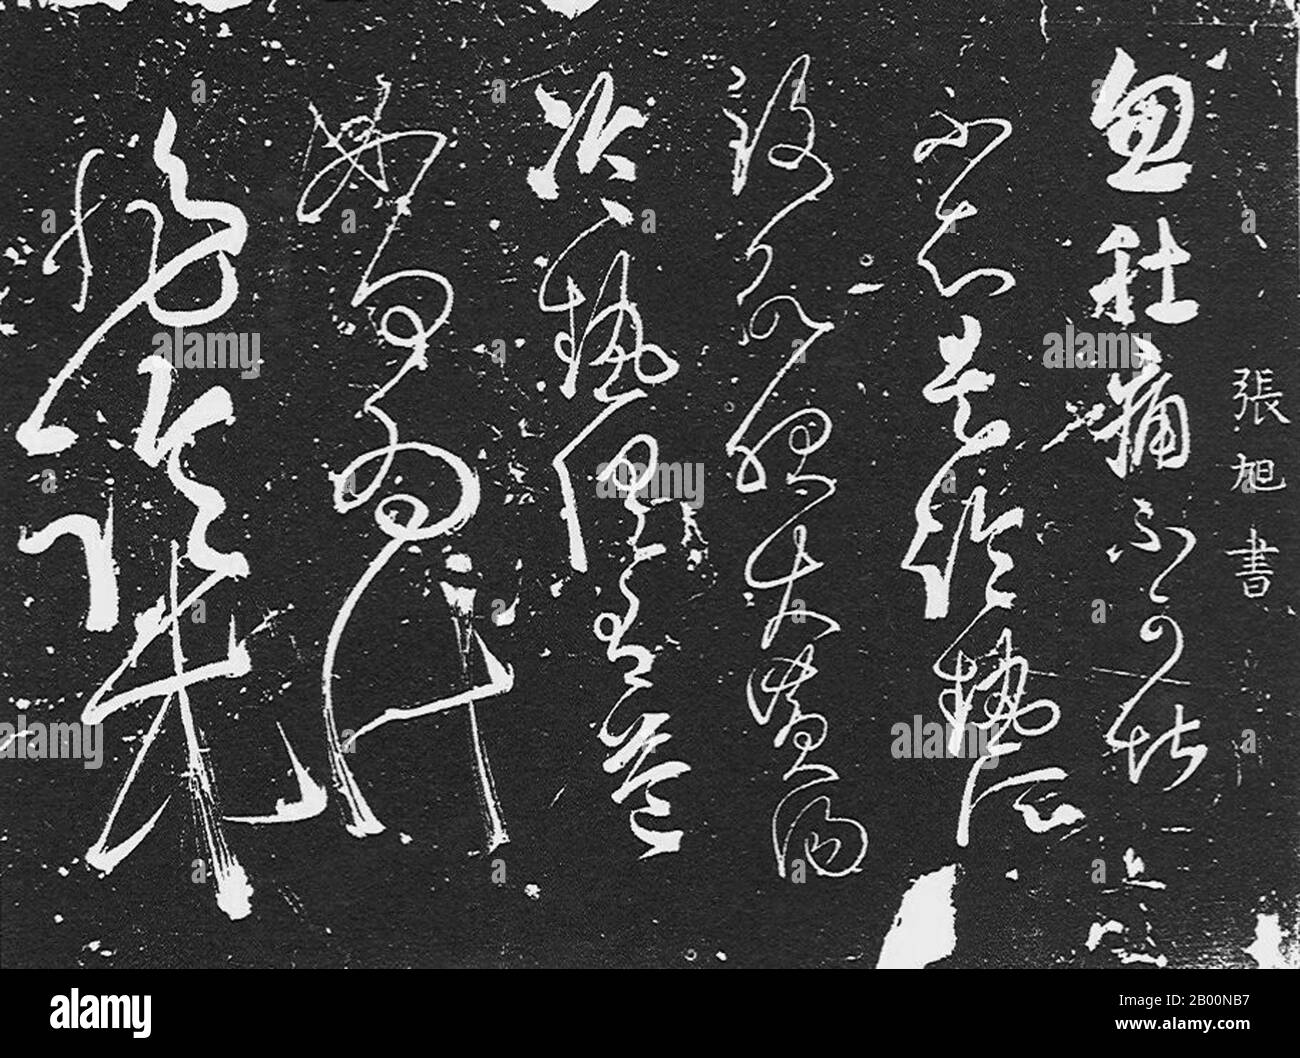 張旭書
忽肚痛不可堪
不知是冷熱所
致欲服大黃湯
冷熱俱有益
如何為計
alamy
Image ID: 2B00NB7
www.alamy.com